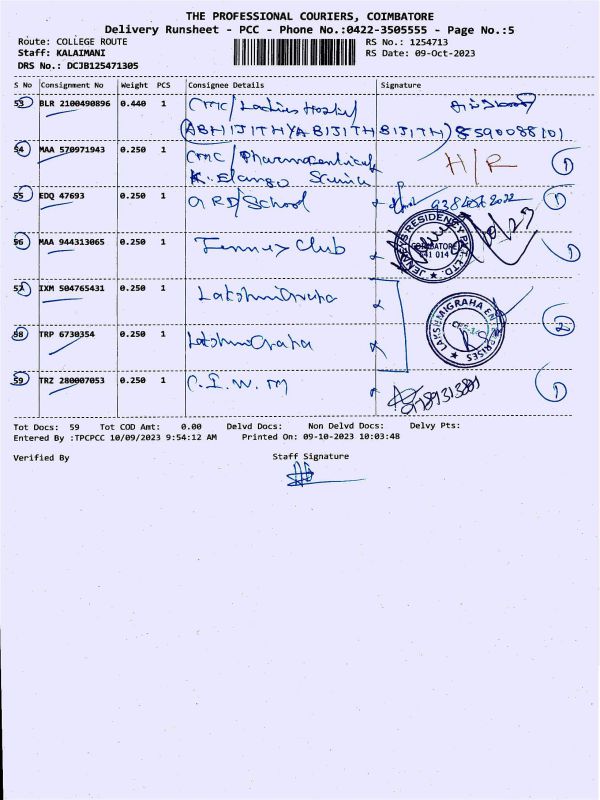 THE PROFESSIONAL COURIERS, COIMBATORE
Delivery Runsheet - PCC - Phone No.:0422-3505555 - Page No.:5
Route: COLLEGE ROUTE
RS No.: 1254713
Staff: KALAIMANI
RS Date: 09-Oct-2023
DRS No.: DCJB125471305
S No Consignment No Weight PCS Consignee Details Signature
53 BLR 2100490896 0.440 1 CMC/Ladies Hostel
(ABHIJITHYABIJITHBIJITH) 8590088101
54 MAA 570971943 0.250 1 CMC/Pharmaceuticals H/R 1
K. Elango
55 EDQ 47693 0.250 1 GRD/School 1
56 MAA 944313065 0.250 1 Jenneys Club 1
JENNEYS RESIDENCY PVT. LTD.
COIMBATORE
641 014
57 IXM 504765431 0.250 1 Lakshmigraha
LAKSHMIGRAHA ENTERPRISES
2
58 TRP 6730354 0.250 1 Lakshmigraha
59 TRZ 280007053 0.250 1 C.I.W.M 1
Tot Docs: 59 Tot COD Amt: 0.00 Delvd Docs: Non Delvd Docs: Delvy Pts:
Entered By :TPCPCC 10/09/2023 9:54:12 AM Printed On: 09-10-2023 10:03:48
Verified By Staff Signature